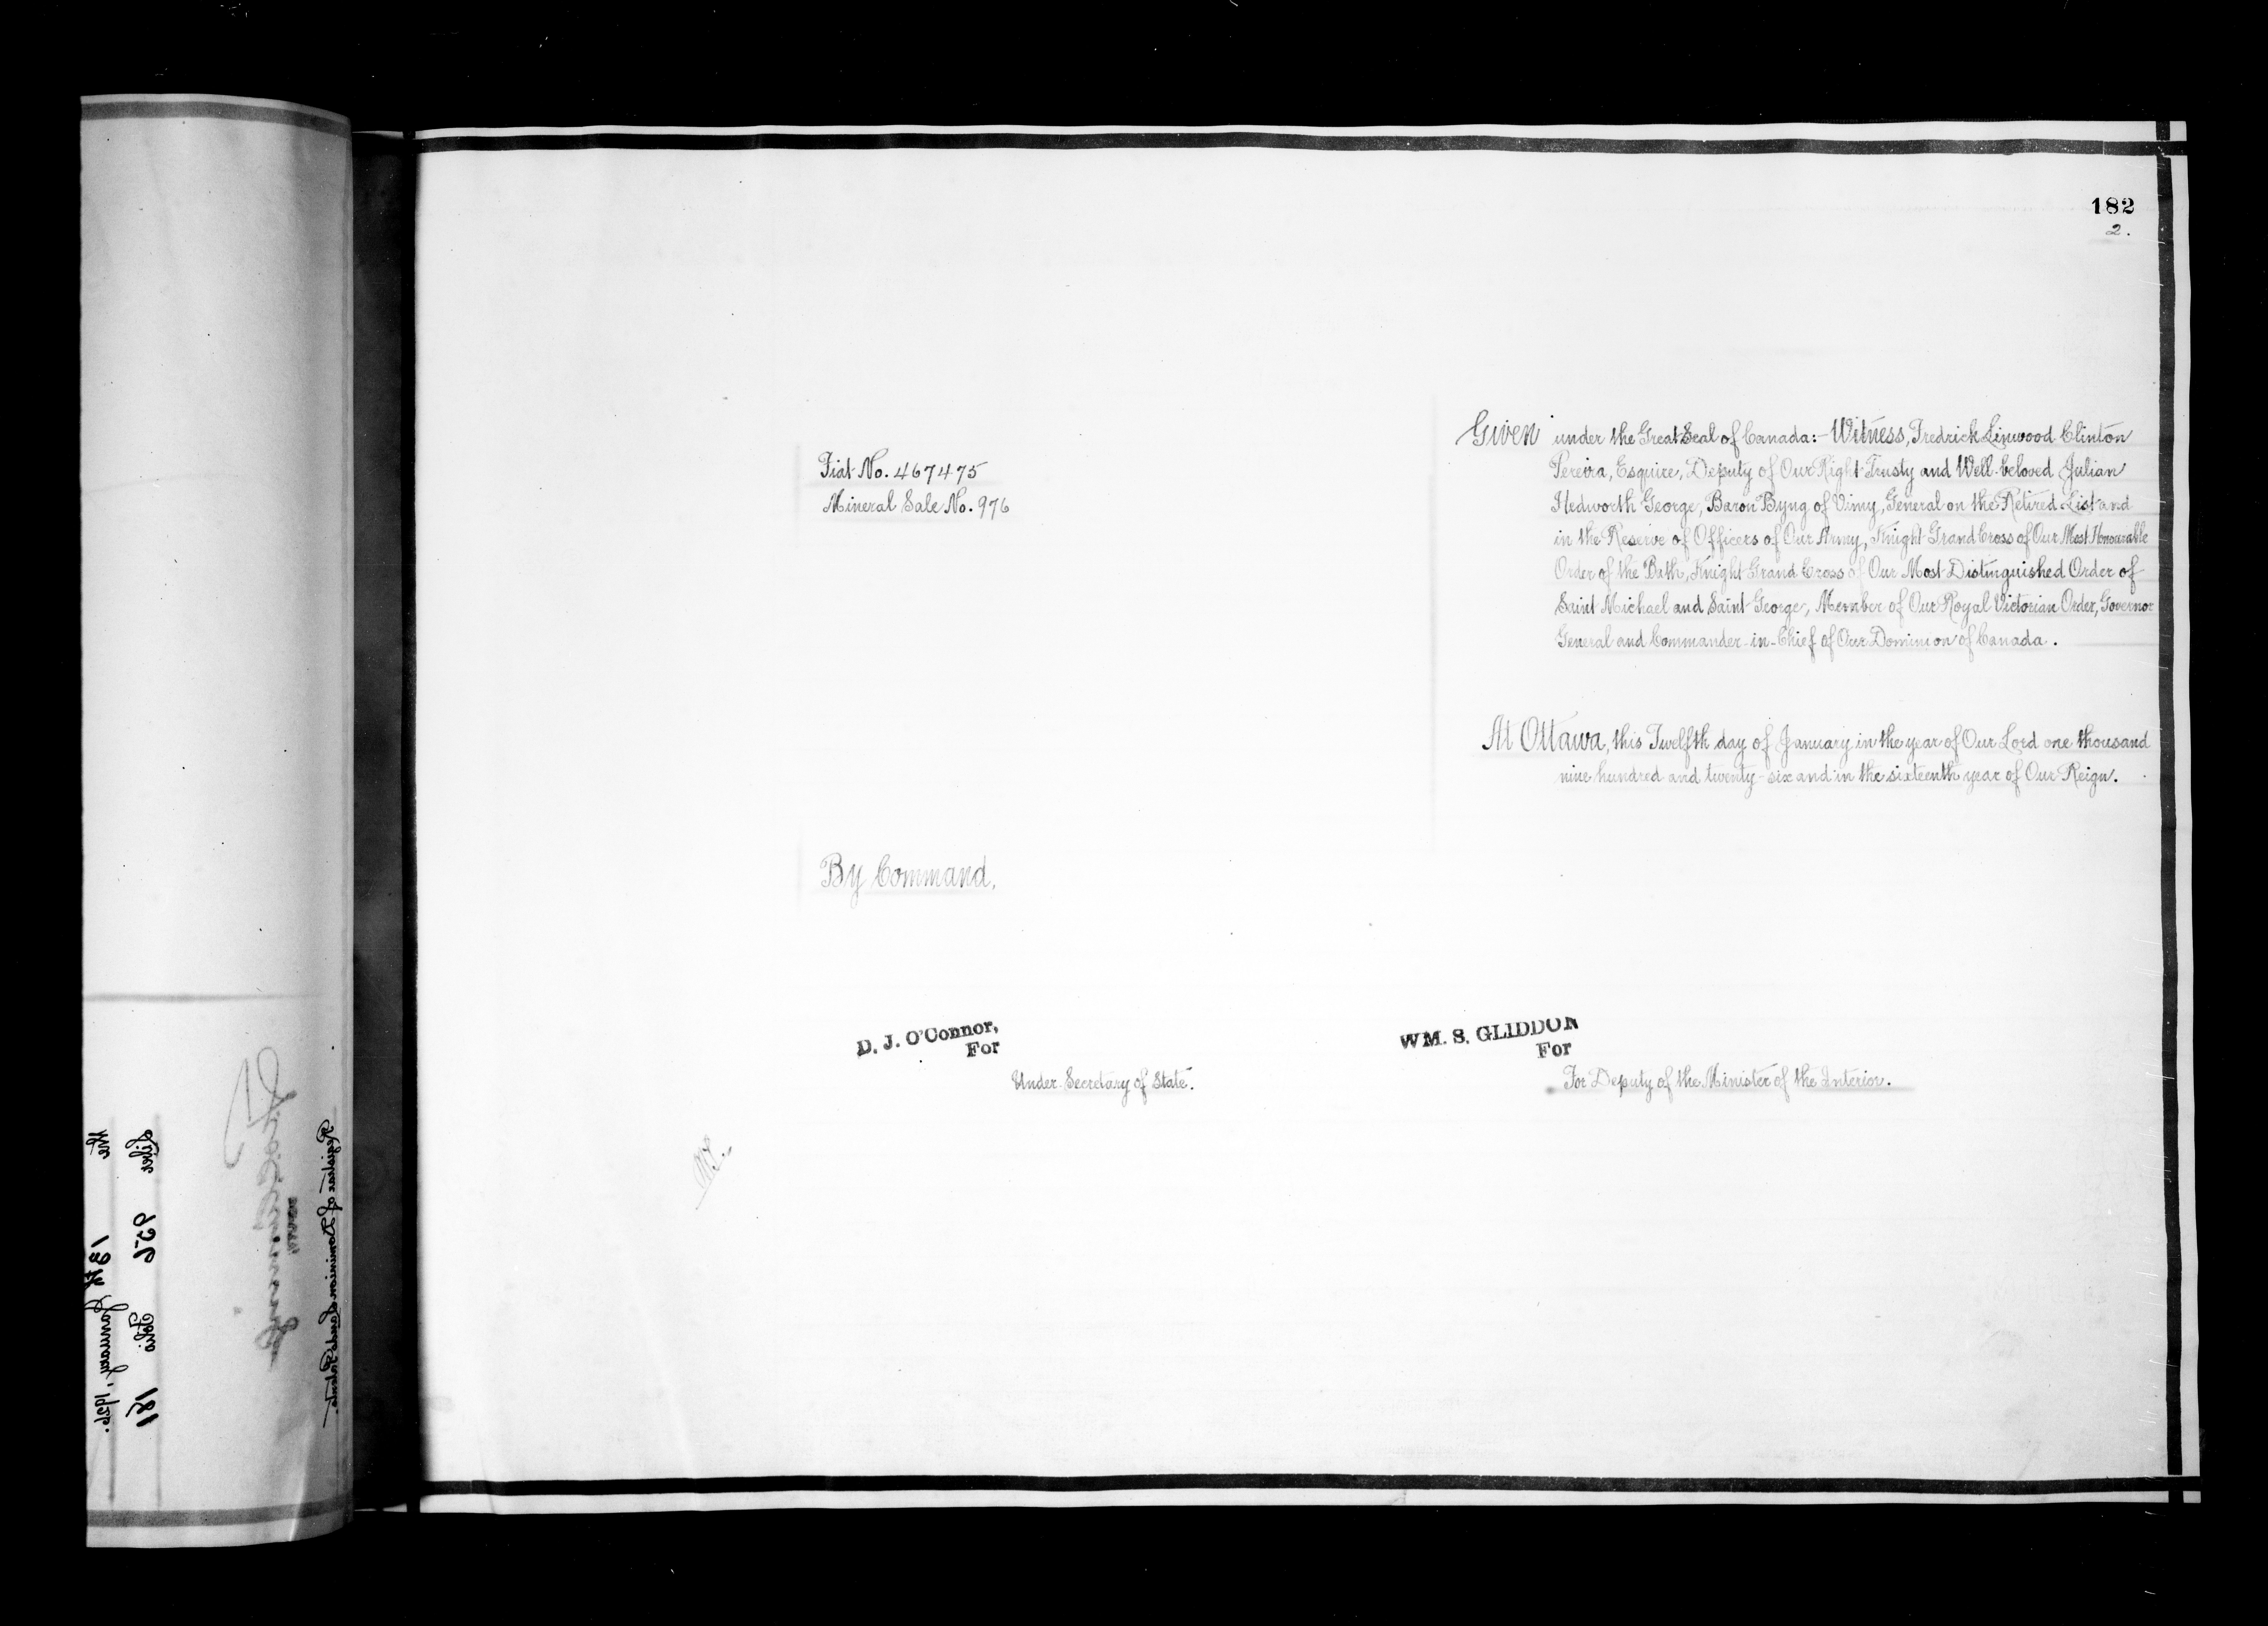 182
2.
Given under the Great Seal of Canada:- Witness, Fredrick Linwood Clinton
Pereira, Esquire, Deputy of Our Right Trusty and Well-beloved Julian
Hedworth George, Baron Byng of Vimy, General on the Retired List and
in the Reserve of Officers of Our Army, Knight Grand Cross of Our Most Honourable
Order of the Bath, Knight Grand Cross of Our Most Distinguished Order of
Saint Michael and Saint George, Member of Our Royal Victorian Order, Governor
General and Commander-in-Chief of Our Dominion of Canada.
Fiat No. 467475
Mineral Sale No. 976
At Ottawa, this Twelfth day of January in the year of Our Lord one thousand
nine hundred and twenty-six and in the sixteenth year of Our Reign.
By Command,
D. J. O'Connor,
For
Under-Secretary of State.
WM. S. GLIDDON
For
For Deputy of the Minister of the Interior.
Registrar of Dominion Lands Patents.
Liber 956 Folio 181
the 13th January, 1926.